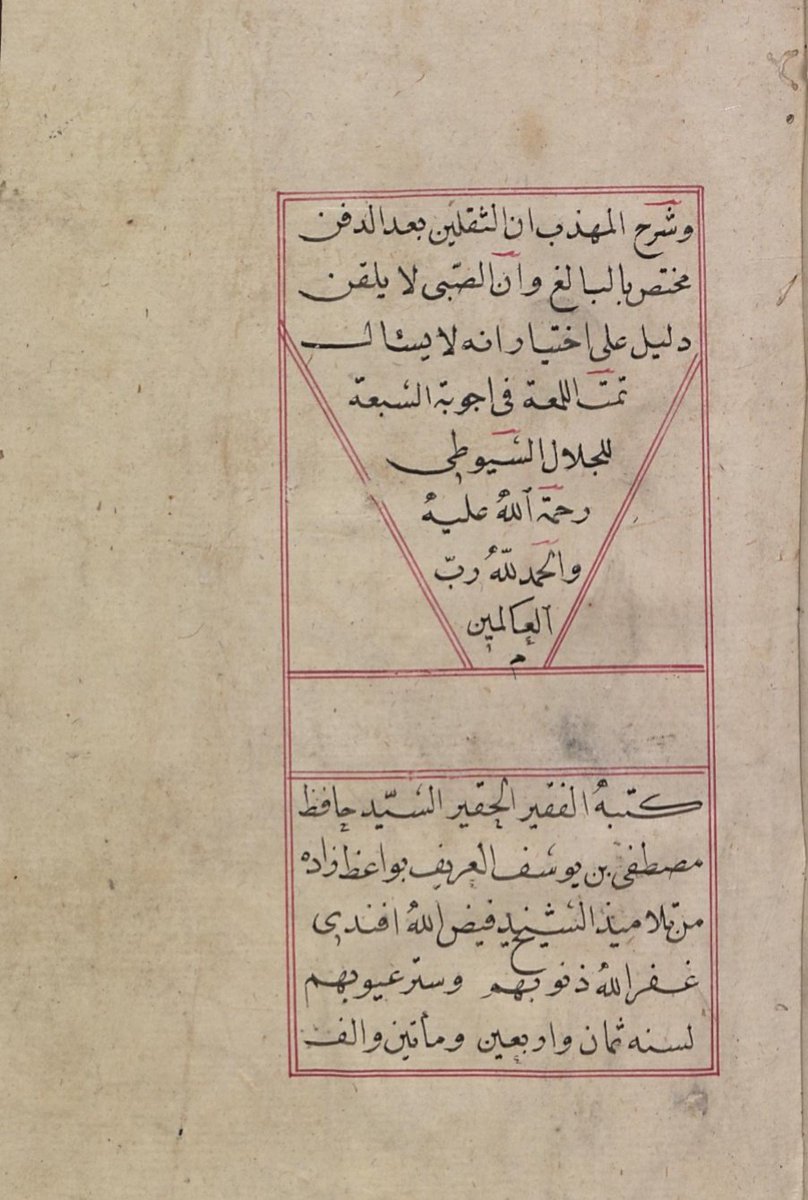 وشرح المهذب ان الثقلين بعد الدفن
مختص بالبالغ وان الصّبى لا يلقن
دليل على اختيار انه لا يسئال
تمت اللمعة فى اجوبة السبعة
للجلال السيوطى
رحمة الله عليه
والحمد لله ربّ
العالمين
م
كتبه الفقير الحقير السيّد حافظ
مصطفى بن يوسف العريف بواعظ زاده
من تلاميذ الشيخ فيض الله افندى
غفر الله ذنوبهم وستر عيوبهم
لسنه ثمان واربعين ومأتين والف